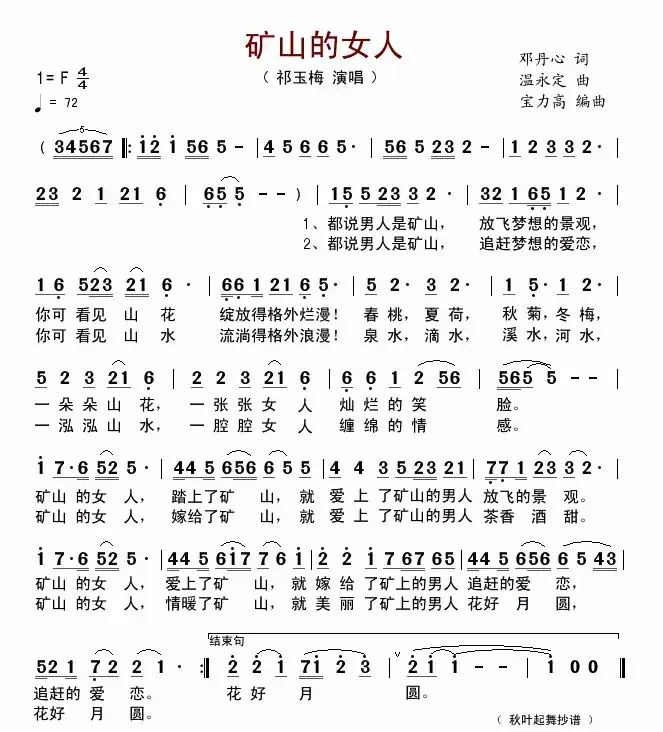 矿山的女人
1=F 4/4
（祁玉梅 演唱）
邓丹心 词
♩= 72
温永定 曲
宝力高 编曲
( 34567 ‖: i2 i 565 - | 4 5 6 6 5· | 56 5 23 2 - | 1 2 3 3 2· |
23 2 1 21 6 | 65 5 - - ) | 15 5 23 3 2· | 32 1 65 1 2· |
1、都说男人是矿山， 放飞梦想的景观，
2、都说男人是矿山， 追赶梦想的爱恋，
1 6 523 21 6· | 66 1 21 6 5· | 5 2· 3 2· | 1 5· 1 2· |
你可 看见 山 花 绽放得格外烂漫！ 春 桃，夏 荷， 秋 菊，冬 梅，
你可 看见 山 水 流淌得格外浪漫！ 泉 水，滴 水， 溪 水，河 水，
5 2 3 21 6 | 2 2 3 21 6 | 6 6 1 2 56 | 565 5 - - |
一 朵 朵 山 花， 一 张 张 女 人 灿 烂 的 笑 脸。
一 泓 泓 山 水， 一 腔 腔 女 人 缠 绵 的 情 感。
i 7·6 52 5· | 44 5 656 6 5 5 | 4 4 3 5 23 21 | 77 1 23 3 2· |
矿山 的 女 人， 踏上了矿 山，就 爱 上 了矿山的男人 放飞的景 观。
矿山 的 女 人， 嫁给了矿 山，就 爱 上 了矿山的男人 茶香 酒 甜。
i 7·6 52 5· | 44 5 6i7 7 6 i | 2 2 i 76 67 65 | 44 5 656 6 5 43 |
矿山 的 女 人， 爱上了矿 山，就 嫁 给 了矿上的男人 追赶的爱 恋，
矿山 的 女 人， 情暖了矿 山，就 美 丽 了矿上的男人 花好 月 圆，
结束句
52 1 7 2 2 1· :‖ 2 2 i 7i 2 3 | 2i i - - | i 0 0 0 ‖
追赶的 爱 恋。 花 好 月 圆。
花好 月 圆。
（ 秋叶起舞抄谱 ）